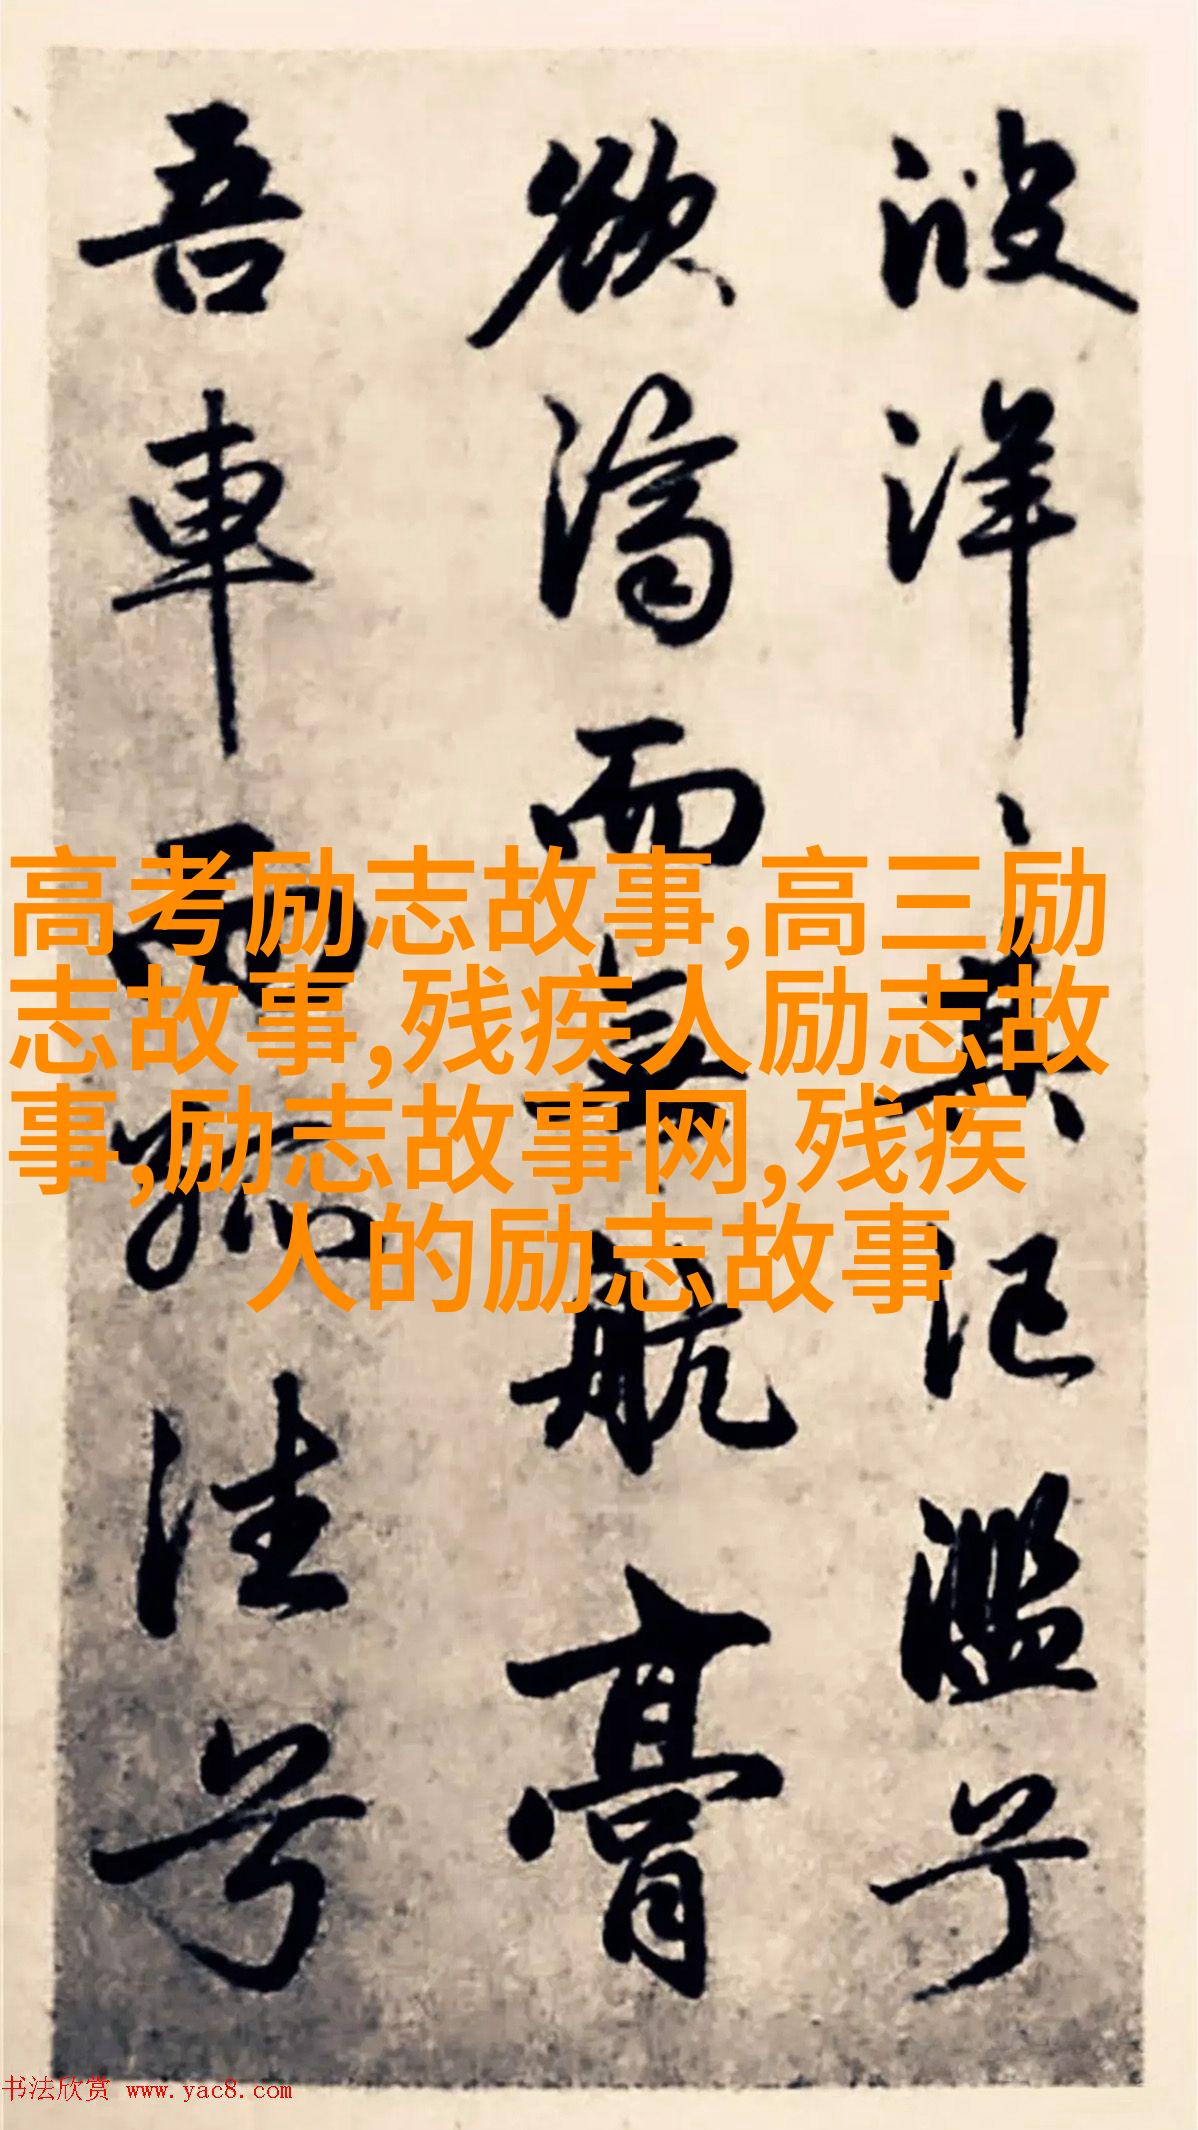 波洋〻其氾濫兮
欲濟而無航膏
吾車而孤往兮
高考励志故事,高三励
志故事,残疾人励志故
事,励志故事网,残疾
人的励志故事
书法欣赏 www.yac8.com